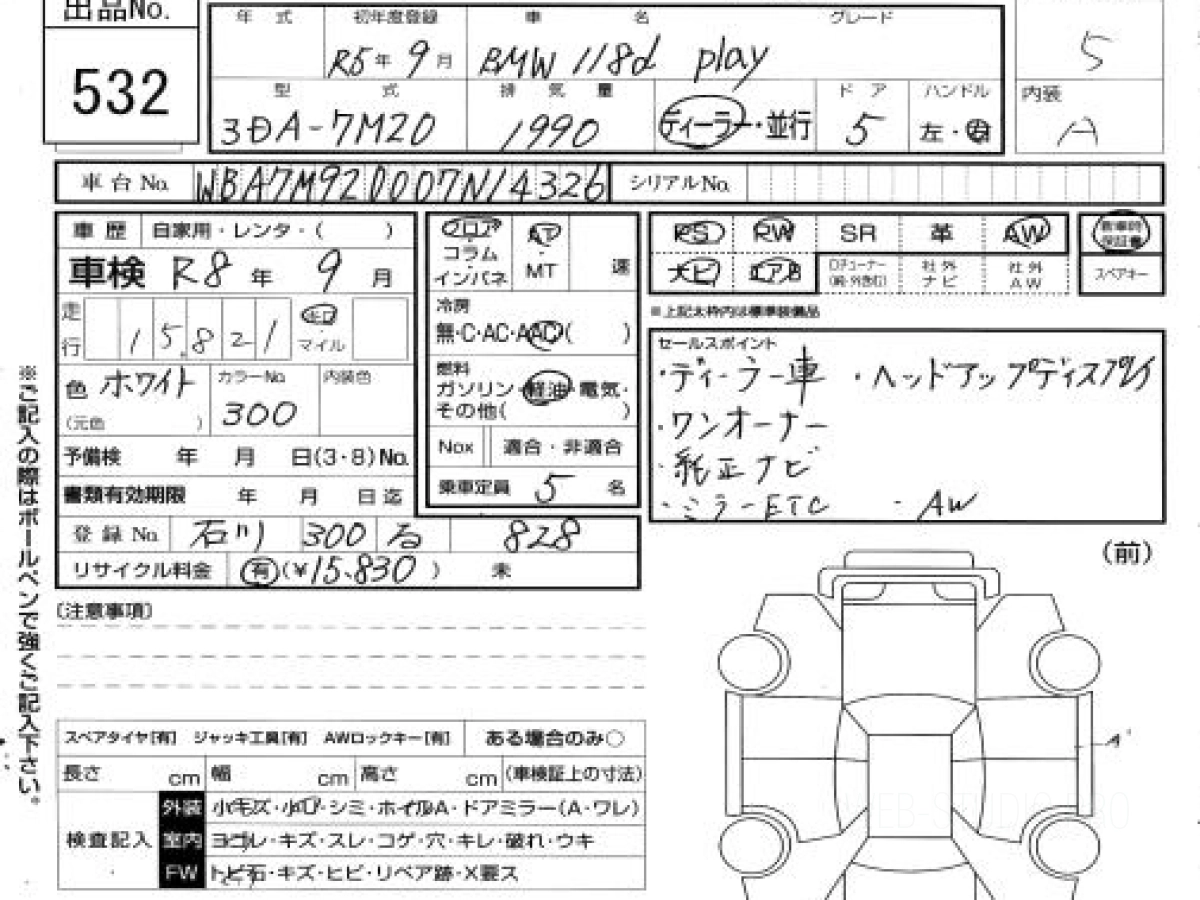 出品No.
532
年 式 初年度登録 車 名 グレード
R5年 9月 BMW 118d play 5
型 式 排 気 量 ドア ハンドル 内装
3DA-7M20 1990 ディーラー・並行 5 左・右 A
車台No. WBA7M9200007N14326 シリアルNo.
車歴 自家用・レンタ・( ) フロア AT PS PW SR 革 AW 新車時保証書
コラム
インパネ MT 速
車検 R8年 9月 ナビ エアB 社外ナビ 社外AW スペアキー
※上記太枠内は標準装備品
走行 15,821 キロ
マイル
冷房
無・C・AC・AAC( )
色 ホワイト カラーNo. 300 内装色
(元色 )
燃料
ガソリン・軽油・電気・
その他( )
セールスポイント
・ディーラー車 ・ヘッドアップディスプレイ
・ワンオーナー
・純正ナビ
・ミラーETC ・AW
予備検 年 月 日(3・8)No. Nox 適合・非適合
書類有効期限 年 月 日迄 乗車定員 5 名
登録No. 石川 300 る 828
リサイクル料金 有(¥15,830 ) 未
(前)
(注意事項)
※ご記入の際はボールペンで強くご記入下さい。
スペアタイヤ[有] ジャッキ工具[有] AWロックキー[有] ある場合のみ○
長さ cm 幅 cm 高さ cm (車検証上の寸法)
検査記入
外装 小キズ・小凹・シミ・ホイルA・ドアミラー(A・ワレ)
室内 ヨゴレ・キズ・スレ・コゲ・穴・キレ・破れ・ウキ
FW トビ石・キズ・ヒビ・リペア跡・X要ス
A'